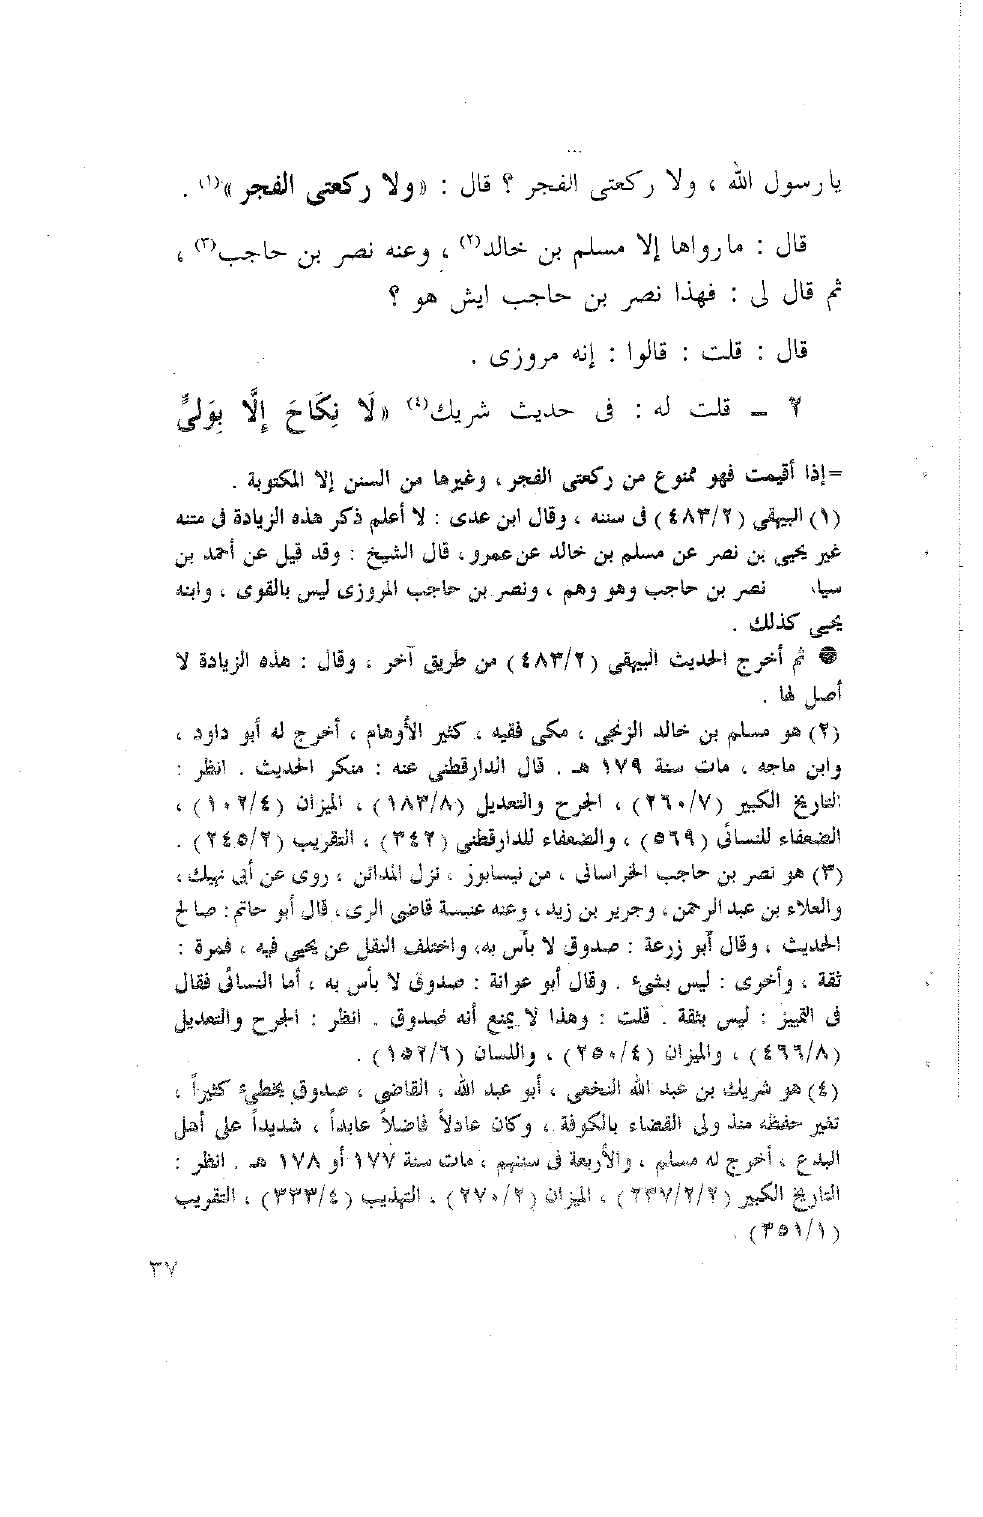 يا رسول الله ، ولا ركعتى الفجر ؟ قال : «ولا ركعتى الفجر»(١) .
قال : ما رواها إلا مسلم بن خالد(٢) ، وعنه نصر بن حاجب(٣) ،
ثم قال لى : فهذا نصر بن حاجب ايش هو ؟
قال : قلت : قالوا : إنه مروزى .
٢ ــ قلت له : فى حديث شريك(٤) «لَا نِكَاحَ إِلَّا بِوَلىٍّ
=إذا أقيمت فهو ممنوع من ركعتى الفجر ، وغيرها من السنن إلا المكتوبة .
(١) البيهقى (٤٨٣/٢) فى سننه ، وقال ابن عدى : لا أعلم ذكر هذه الزيادة فى متنه
غير يحيى بن نصر عن مسلم بن خالد عن عمرو ، قال الشيخ : وقد قيل عن أحمد بن
سيا نصر بن حاجب وهو وهم ، ونصر بن حاجب المروزى ليس بالقوى ، وابنه
يحيى كذلك .
● ثم أخرج الحديث البيهقى (٤٨٣/٢) من طريق آخر ، وقال : هذه الزيادة لا
أصل لها .
(٢) هو مسلم بن خالد الزنجى ، مكى فقيه ، كثير الأوهام ، أخرج له أبو داود ،
وابن ماجه ، مات سنة ١٧٩ هـ . قال الدارقطنى عنه : منكر الحديث . انظر :
التاريخ الكبير (٢٦٠/٧) ، الجرح والتعديل (١٨٣/٨) ، الميزان (١٠٢/٤) ،
الضعفاء للنسائى (٥٦٩) ، والضعفاء للدارقطنى (٣٤٢) ، التقريب (٢٤٥/٢) .
(٣) هو نصر بن حاجب الخراسانى ، من نيسابوز . نزل المدائن ، روى عن أبى نهيك ،
والعلاء بن عبد الرحمن ، وجرير بن زيد ، وعنه عنبسة قاضى الرى ، قال أبو حاتم : صالح
الحديث ، وقال أبو زرعة : صدوق لا بأس به، واختلف النقل عن يحيى فيه ، فمرة :
ثقة ، وأخرى : ليس بشىء . وقال أبو عوانة : صدوق لا بأس به ، أما النسائى فقال
فى التمييز : ليس بثقة . قلت : وهذا لا يمنع أنه صدوق . انظر : الجرح والتعديل
(٤٦٦/٨) ، والميزان (٢٥٠/٤) ، واللسان (١٥٢/٦) .
(٤) هو شريك بن عبد الله النخعى ، أبو عبد الله ، القاضى ، صدوق يخطىء كثيراً ،
تغير حفظه منذ ولى القضاء بالكوفة ، وكان عادلاً فاضلاً عابداً ، شديداً على أهل
البدع ، أخرج له مسلم ، والأربعة فى سننهم ، مات سنة ١٧٧ أو ١٧٨ هـ . انظر :
التاريخ الكبير (٢٣٧/٢/٢) ، الميزان (٢٧٠/٢) ، التهذيب (٣٣٣/٤) ، التقريب
(٣٥١/١) .
٣٧